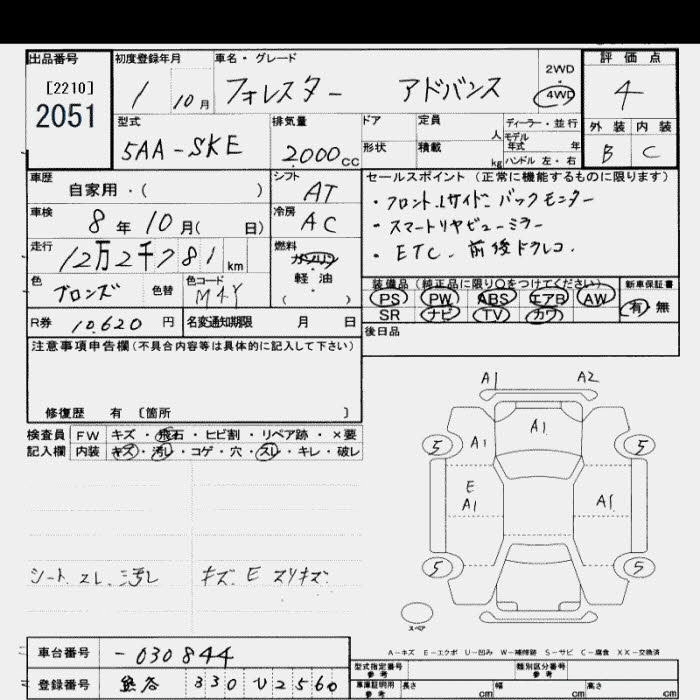 出品番号
[2210]
2051
初度登録年月
1 10 月
車名・グレード
フォレスター アドバンス
2WD
4WD
評価点
4
外装 内装
B C
型式
5AA-SKE
排気量
2000 cc
ドア
定員
人
形状
積載
kg
ディーラー・並行
モデル年式 年
ハンドル 左・右
車歴
自家用・( )
シフト
AT
車検
8 年 10 月( 日)
冷房
AC
走行
12万2千781 km
燃料
ガソリン
・
軽油
( )
色
ブロンズ
色替
色コード
M4Y
R券
10,620 円
名変通知期限 月 日
セールスポイント(正常に機能するものに限ります)
・フロント.サイド.バックモニター
・スマートリヤビューミラー
・ETC. 前後ドラレコ.
装備品(純正品に限り○をつけてください)
PS PW ABS エアB AW
SR ナビ TV カワ
新車保証書
有 無
後日品
注意事項申告欄(不具合内容等は具体的に記入して下さい)
修復歴 有 〔箇所 〕
検査員
記入欄
FW キズ・飛石・ヒビ割・リペア跡・×要
内装 キズ・汚レ・コゲ・穴・スレ・キレ・破レ
シート スレ.汚レ
キズ. E スリキズ.
A1 A2
A1
5 A1 5
E
A1 A1
5 5
スペア
A-キズ E-エクボ U-凹み W-補修跡 S-サビ C-腐食 XX-交換済
車台番号
-030844
登録番号
330 2560
型式指定番号
参考
類別区分番号
参考
車庫証明用
参考
長さ cm
幅 cm
高さ cm